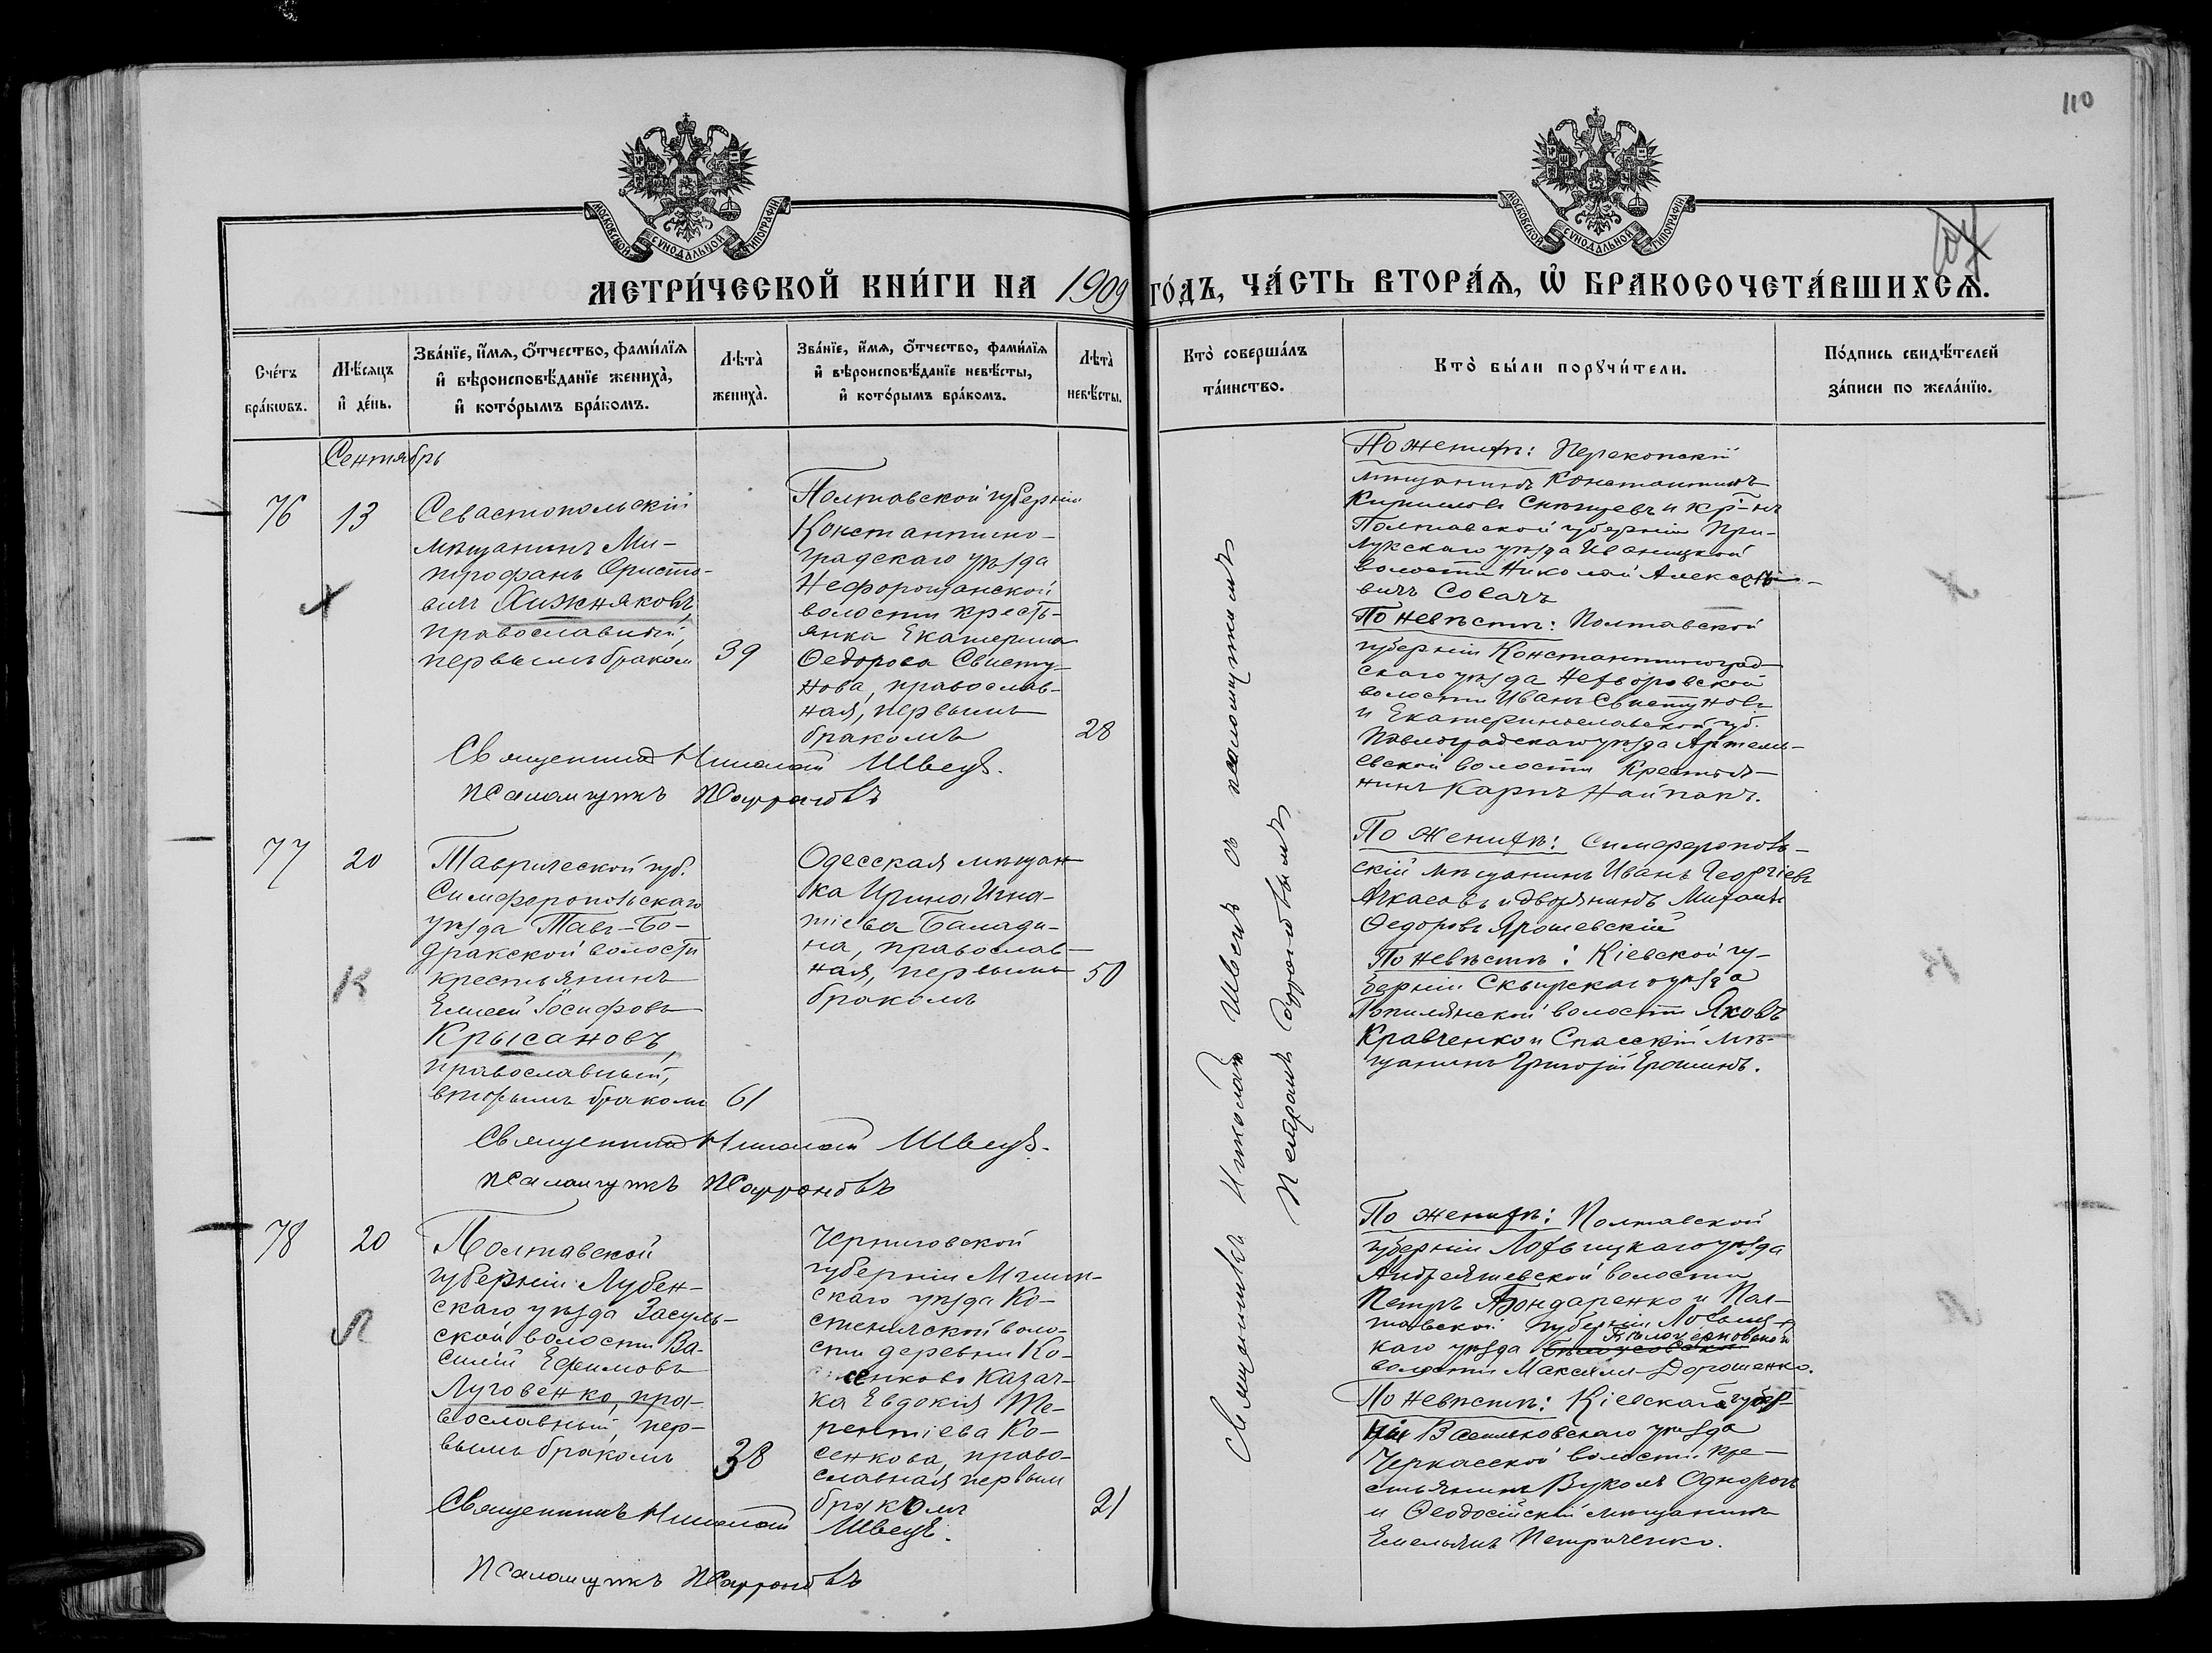 110
МОСКОВСКОЙ СѴНОДАЛЬНОЙ ТИПОГРАФІИ
МОСКОВСКОЙ СѴНОДАЛЬНОЙ ТИПОГРАФІИ
МЕТРИ́ЧЕСКОЙ КНИ́ГИ НА 1909 ГО́ДЪ, ЧА́СТЬ ВТОРА́Ѧ, Ѡ҆ БРАКОСОЧЕТА́ВШИХСѦ.
Сче́тъ
бра́кѡвъ.
Мѣ́сѧцъ
и҆ де́нь.
Зва́нїе, и҆́мѧ, ѻ҆́тчество, фами́лїѧ
и҆ вѣроисповѣ́данїе жениха̀,
и҆ кото́рымъ бра́комъ.
Лѣта̀
жениха̀.
Зва́нїе, и҆́мѧ, ѻ҆́тчество, фами́лїѧ
и҆ вѣроисповѣ́данїе невѣ́сты,
и҆ кото́рымъ бра́комъ.
Лѣта̀
невѣ́сты.
Кто̀ соверша́лъ
та́инство.
Кто̀ бы́ли порꙋчи́тели.
По́дпись свидѣ́телей
за́писи по жела́нїю.
Сентябрь
76
13
Севастопольскій
мѣщанинъ Ми-
трофанъ Ористо-
вич Хижняковъ,
православный,
первымъ бракомъ
39
Полтавской губерніи
Константино-
градскаго уѣзда
Нефорощанской
волости кресть-
янка Екатерина
Ѳедорова Свисту-
нова, православ-
ная, первымъ
бракомъ
28
Священникъ Николай Швецъ.
Псаломщикъ
По женихѣ: Перекопскій
мѣщанинъ Константинъ
Кирилловъ и кр-нъ
Полтавской губерніи При-
лукскаго уѣзда Иваницкой
волости Николай Алексѣе-
вичъ Собачъ
По невѣстѣ: Полтавской
губерніи Константиноград-
скаго уѣзда
волости Иванъ Свистуновъ
и Екатеринославской губ.
Павлоградскаго уѣзда Артемь-
евской волости Крестья-
нинъ Карпъ Найпакъ.
77
20
Таврической губ.
Симферопольскаго
уѣзда Тавъ-Бо-
дракской волости
крестьянинъ
Елисей Іосифовъ
Крысановъ,
православный,
вторымъ бракомъ
61
Одесская мѣщан-
ка Ирина Игна-
тіева Балади-
на, православ-
ная, первымъ
бракомъ
50
Священникъ Николай Швецъ.
Псаломщикъ
По женихѣ: Симферополь-
скій мѣщанинъ Иванъ Георгіевъ
Ачкасовъ и дворянинъ Михаилъ
Ѳедоровъ Ярошевскій
По невѣстѣ: Кіевской гу-
берніи Сквирскаго уѣзда
волости Яковъ
Кравченко и Спасскій мѣ-
щанинъ Григорій Ерошинъ.
К
78
20
Полтавской
губерніи Лубен-
скаго уѣзда Засуль-
ской волости Ва-
силій Ефимовъ
Луговенко, пра-
вославный, пер-
вымъ бракомъ
38
Черниговской
губерніи Мглин-
скаго уѣзда Ко-
стеничской воло-
сти деревни Ко-
сенково казач-
ка Евдокія Те-
рентіева Ко-
сенкова, право-
славная первым
бракомъ
21
Священникъ Николай Швецъ.
Псаломщикъ
Л
По женихѣ: Полтавской
губерніи Лохвицкаго уѣзда
Андреяшевской волости
Петръ Бондаренко и Пол-
тавской губерніи Лохвиц-
каго уѣзда
волости Максимъ Дорошенко.
По невѣстѣ: Кіевской губер-
ніи Васильковскаго уѣзда
Черкасской волости кре-
стьянинъ Вуколъ Однорогъ
и Ѳеодосійскій мѣщанинъ
Емельянъ Петриченко.
Священникъ Николай Швецъ съ псаломщикомъ